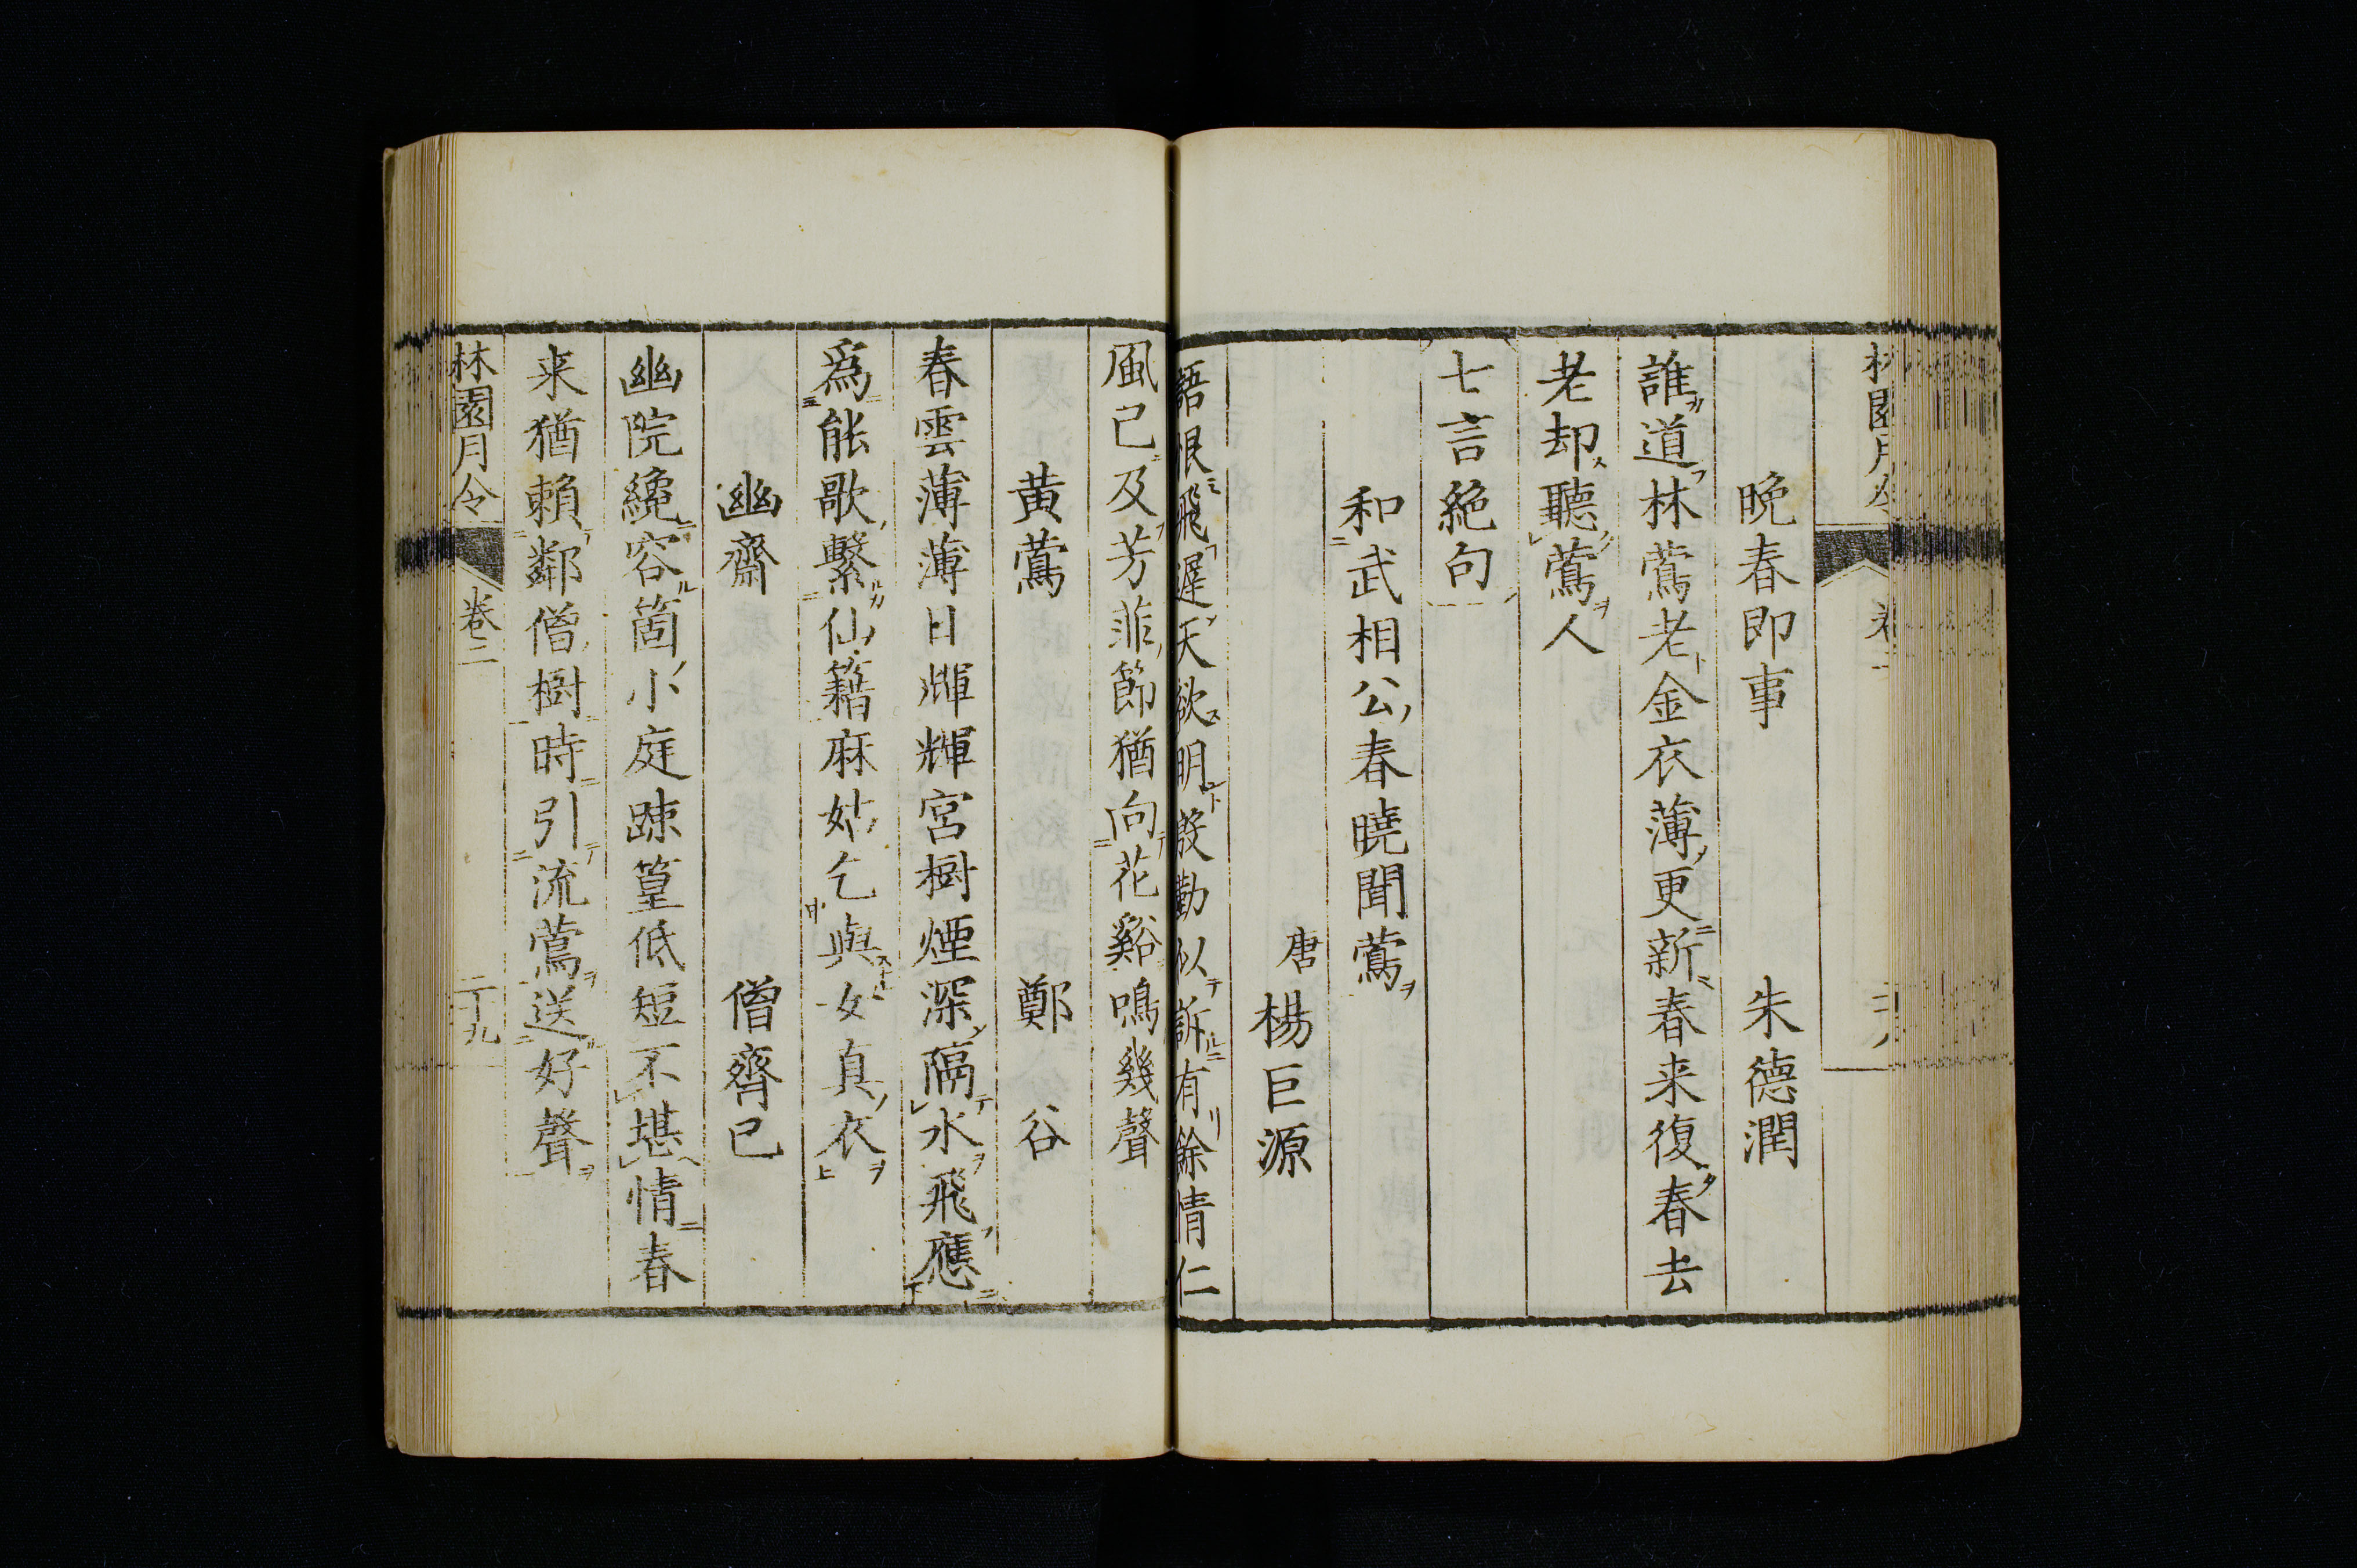 林園月令
晩春即事　朱德潤
誰道林鶯老金衣薄更新春来復春去
老却聽鶯人
七言絶句
和武相公春曉聞鶯
唐　楊巨源
語恨飛遲天欲明殷勤似訴有餘情仁
風已及芳菲節猶向花谿鳴幾聲
黄鶯　鄭谷
春雲薄薄日輝輝宮樹煙深隔水飛應
爲能歌繫仙籍麻姑乞與女真衣
幽齋　僧齊已
幽院纔容箇小庭踈篁低短不堪情春
来猶賴鄰僧樹時引流鶯送好聲
林園月令　卷二　二十九